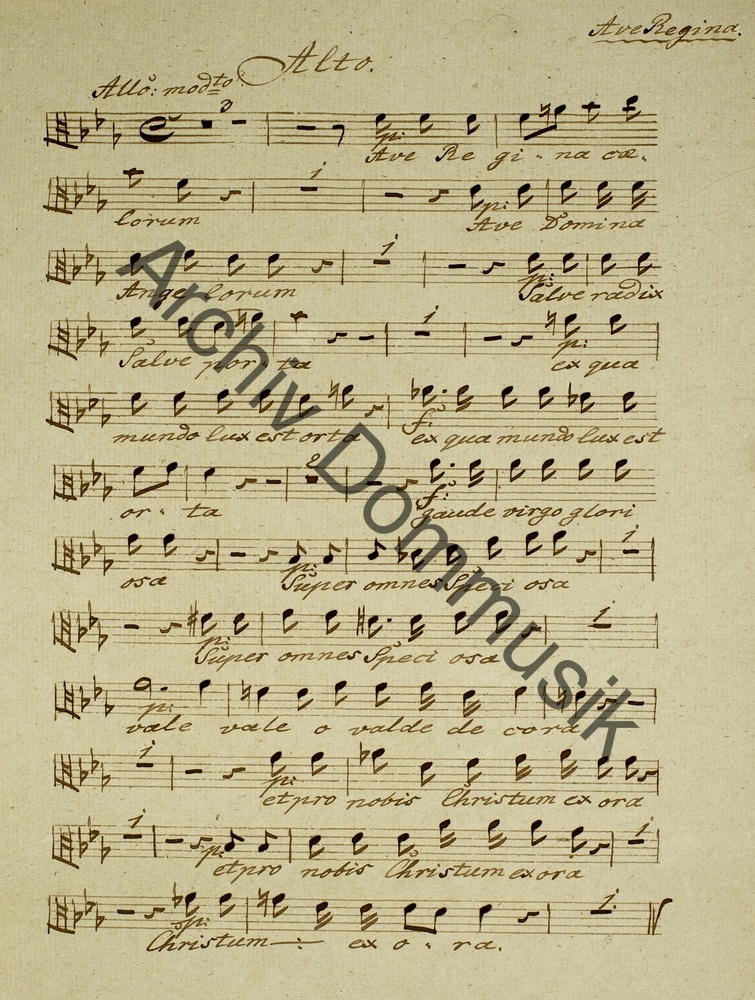 Ave Regina.
Alto.
Allo: modto
3
p:
Ave Re gi - na cæ -
1
p:
lorum Ave Domina
1
p:
Angelorum Salve radix
1
p:
Salve por - ta ex qua
f:
mundo lux est orta ex qua mundo lux est
2
f:
or - ta gaude virgo glori
1
p:
osa Super omnes Speci osa
1
p:
Super omnes Speci osa
p:
vale vale o valde de cora
1
p:
et pro nobis Christum ex ora
1 1
p:
et pro nobis Christum exora
1
sp:
Christum —: ex o - ra.
Archiv Dommusik